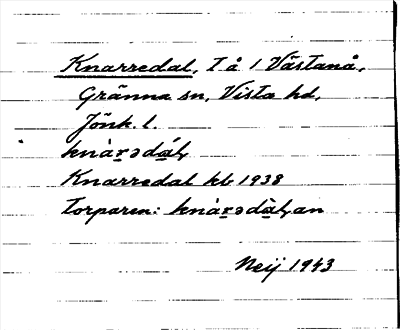 Knarredal, T å 1 Västanå,
Gränna sn, Vista hd,
Jönk. l.
knàr̲ədá̲l,
Knarredal kb 1938
Torparen: knàr̲ədà̲l,an
Neij 1943